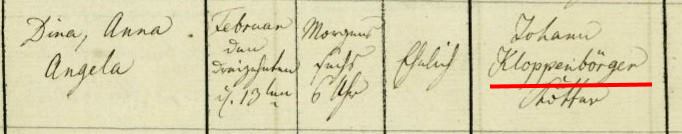 Dina, Anna
Angela
Februar
den
dreizehnten
d. 13ten
Morgens
sechs
6 Uhr
Ehelich
Johann
Kloppenbörger
Kötter